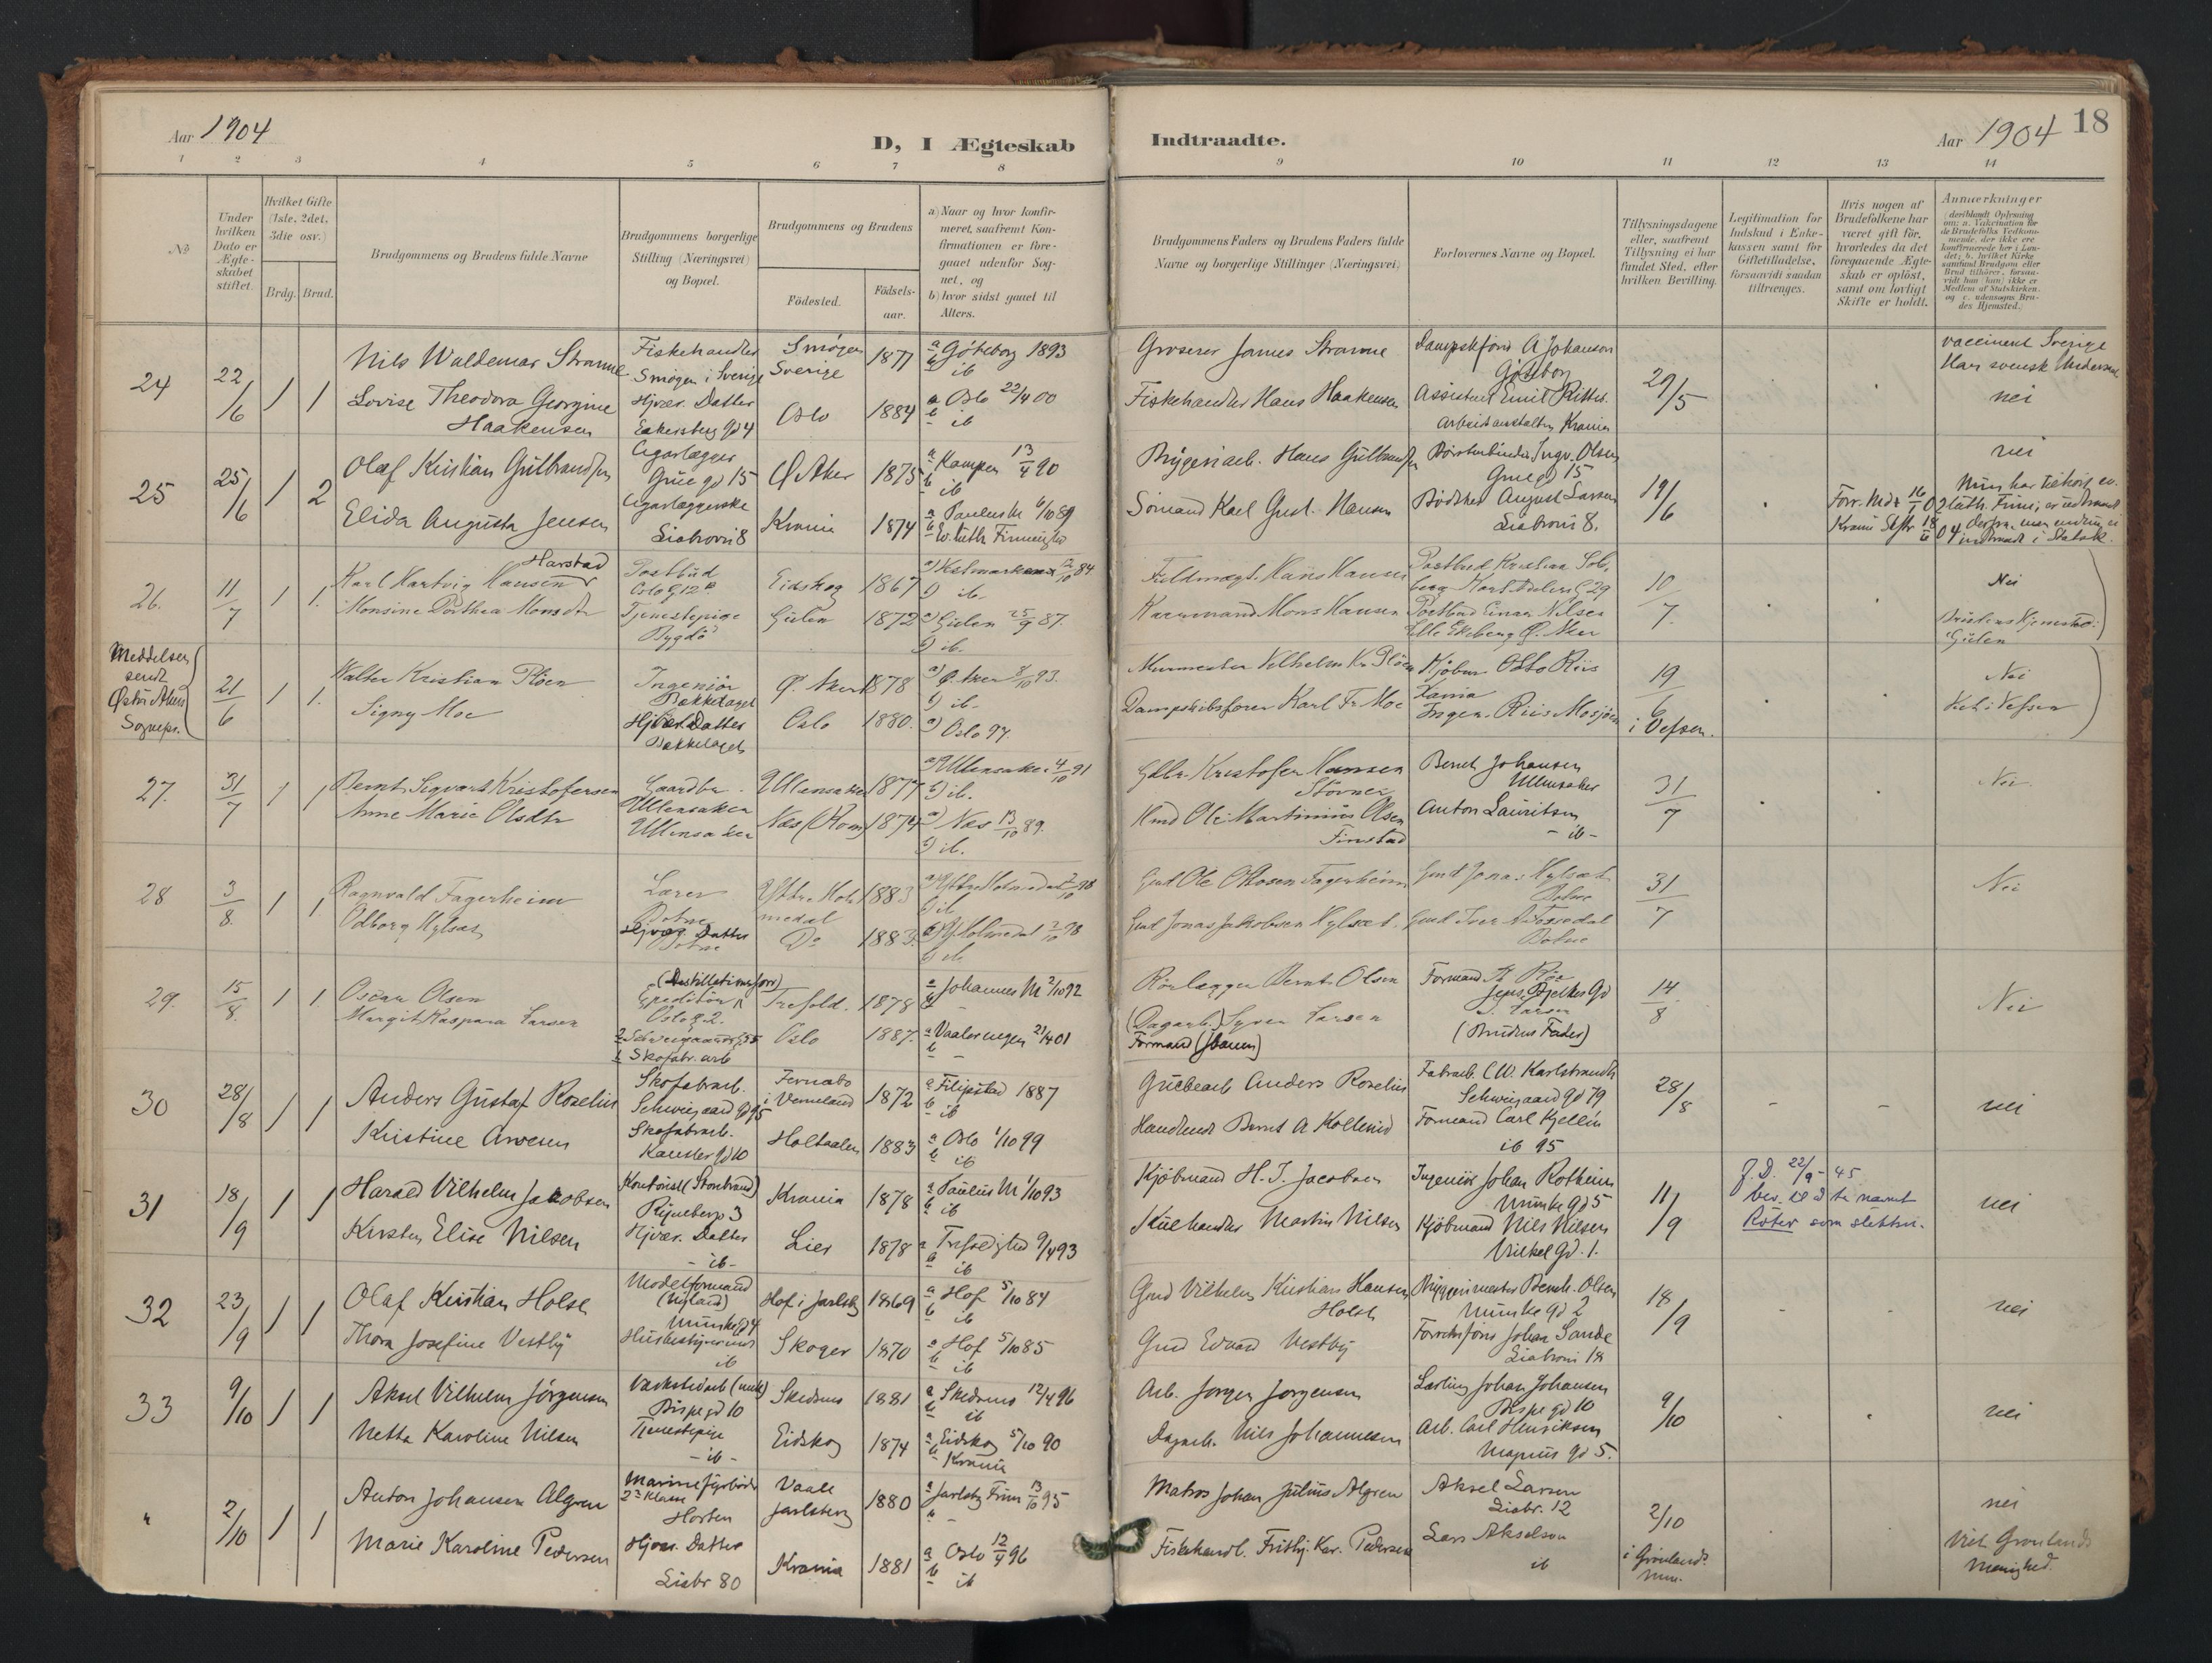 Aar 1904
D, I Ægteskab
Indtraadte.
Aar 1904
18
1 2 3 4 5 6 7 8 9 10 11 12 13 14
№
Under hvilken Dato er Ægte-skabet stiftet.
Hvilket Gifte (1ste, 2det, 3die osv.)
Brdg. Brud.
Brudgommens og Brudens fulde Navne
Brudgommens borgerlige Stilling (Næringsvei) og Bopæl.
Brudgommens og Brudens
Födested.
Födsels-aar.
a) Naar og hvor konfir-meret, saafremt Kon-firmationen er fore-gaaet udenfor Sog-net, og
b) hvor sidst gaaet til Alters.
Brudgommens Faders og Brudens Faders fulde Navne og borgerlige Stillinger (Næringsvei)
Forlovernes Navne og Bopæl.
Tillysningsdagene eller, saafremt Tillysning ei har fundet Sted, efter hvilken Bevilling.
Legitimation for Indskud i Enke-kassen samt for Giftetilladelse, forsaavidt saadan tiltrænges.
Hvis nogen af Brudefolkene har været gift för, hvorledes da det foregaaende Ægte-skab er oplöst, samt om lovligt Skifte er holdt.
Anmærkninger
24
22/6
1 1
Nils Waldemar Stranne
Fiskehandler
Smögen i Sverige
Smögen
Sverige
1877
a Göteborg 1893
b ib
Groserer James Stranne
A Johanson
Göteborg
29/5
vaccineret Sverige
Har svensk
Lovise Theodora Georgine
Haakensen
Hjvær. Datter
Ekebergs gd 4
Oslo
1884
a Oslo 22/4 00
b ib
Fiskehandler Hans Haakensen
Assistent Emil Ritter
Arbeidsanstalten Krania
nei
25
25/6
1 2
Olaf Kristian Gulbrandsen
Cigarlægger
Grue gd 15
Ø. Aker
1875
a Kampen 13/4 90
b ib
Bryggeriarb. Hans Gulbrandsen
Börstenbinder Ingv. Olsen
Grue gd 15
19/6
nei
Elida Augusta Jensen
Cigarlæggerske
Liabrovei 8
Krania
1874
a Paulus M 6/10 89
Sömand Karl Gust. Hansen
Bödker August Larsen
Liabrovei 8.
26.
11/7
1 1.
Karl Hartvig Hansen Harstad
Postbud
Oslo G 12 B
Eidskog
1867
b) ib.
Hans Hansen
Postbud Kristian Sol-
berg Karl Adelers G 29
10/7.
Nei
Monsine Dorthea Monsdtr
Tjenestepige
Bygdö
Gulen
1872
a) Gulen 25/9 87.
b) ib.
Mons Hansen
Postbud Einar Nilsen
Ekeberg Ø. Aker
Brudens Hjemsted:
Gulen
Meddelsen
sendt
Östre Akers
Sognepr.
21/6
1 1.
Walter Kristian Plöen
Ingeniör
Bækkelaget
Ø. Aker
1878
a) Ø. Aker 8/10 93.
b) ib.
Murmester Vilhelm Kr. Plöen
Kjöbm. Otto Riis
Kania
19/6
i Vefsen.
Nei
Signy Moe
Hjvær. Datter
Bækkelaget
Oslo
1880.
a) Oslo 97.
Dampskibsförer Karl Fr. Moe
Ingen. Riis Mosjöen
27.
31/7
1 1
Bernt Sigvart Kristofersen
Gaardbr.
Ullensaker
Ullensaker
1877
a) Ullensaker 4/10 91
b) ib.
Gdbr. Kristofer Hansen
Störner
Bernt Johansen
Ullensaker
31/7
Nei
Anne Marie Olsdtr
Ullensaker
Næs (Rom)
1874
a) Næs 13/10 89.
b) ib.
Gmd Ole Martinius Olsen
Finstad
Anton Lauritsen
- ib -
28
3/8.
1 1
Ragnvald Fagerheim
Lærer
Botne
Yttre Hol-
medal
1883
b) ib
Gmd Ole Olsosen Fagerheim
Gmd Jonas Hylsæt
Botne
31/7
Nei
Odborg Hylsæt
Hjvær. Datter
Botne
Do
1883.
a) Y. Holmedal 2/10 98
b) ib
Gmd Jonas Jakobsen Hylsæt.
Gmd Iver Fossedal
Botne
29.
15/8.
1 1.
Oscar Olsen
(Destillationsforr)
Expeditör
Oslo g. 2.
Trefold.
1878
a Johannes M 2/10 92
b -
Rörlægger Bernt Olsen
Formand A Röa
Jens Bjelkes Gd
14/8
Nei
Margit Kaspara Larsen
Schweigaards g 55
Skofabr. arb
Oslo
1887.
a Vaalerengen 21/4 01
b -
(Dagarb.) Syver Larsen
Formand (Jbanen)
S. Larsen
(Brudens Fader)
30
28/8
1 1
Anders Gustaf Roselius
Skofabrarb.
Schweigaard gd 95
Fernebo
i Vermeland
1872
a Filipstad 1887
b ib
Grubearb Anders Roselius
Fabrarb. C W. Karlstrandh
Schweigaard gd 79
28/8
-
-
nei
Kristine Arvesen
Skofabrarb.
Kanslergd 10
Holtaalen
1883
a Oslo 1/10 99
b ib
Handlende Bernt A Kollerud
Formand Carl Kjellin
ib 95
31
18/9
1 1
Harald Vilhelm Jakobsen
Kontorist (Storbrand)
Ryenberg 3
Krania
1878
a Paulus M 1/10 93
b ib
Kjöbmand H. J. Jacobsen
Ingeniör Johan Rotheim
Munke gd 5
11/9
J. D. 22/9 - 45
bev. til å ta navnet
Röter som slektsn.
nei
Kirsten Elise Nilsen
Hjvær. Datter
- ib -
Lier
1878
a Trefoldighed 9/4 93
b ib
Kulhandler Martin Nilsen
Kjöbmand Nils Nilsen
Vinkel gd. 1.
32
23/9
1 1
Olaf Kristian Holst
Modelformand
(Nyland)
Munkegd 4
Hof i Jarlsberg
1869
a Hof 5/10 84
b ib
Gmd Vilhelm Kristian Hansen
Holst
Byggmester Bernh. Olsen
Munke gd 2
18/9
-
-
nei
Thora Josefine Vestby
Husbestyrerinde
ib
Skoger
1870
a Hof 5/10 85
b ib
Gmd Edvard Vestby
Johan Sande
Liabrovei 18
33
9/10
1 1
Aksel Vilhelm Jörgensen
Værkstedarb (mek)
Bispegd 10
Skedsmo
1881
a Skedsmo 12/4 96
b ib
Arb. Jorgen Jorgensen
Lærling Johan Johansen
Bispe gd 10
9/10
nei
Netta Karoline Nilsen
Tjenestepige
- ib -
Eidskog
1874
a Eidskog 5/10 90
b Krania
Dagarb. Nils Johannesen
Arb. Carl Henriksen
Magnus gd 5.
"
2/10
1 1
Anton Johansen Algren
Marinefyrböder
2den Klasse
Horten
Vaale
Jarlsberg
1880
a Jarlsbg Frim 13/10 95
b -
Matros Johan Julius Algren
Aksel Larsen
Liabr. 12
2/10
i Grönlands
nei
Marie Karoline Pedersen
Hjvær. Datter
Liabr 80
Krania
1881
a Oslo 12/4 96
b ib
Fiskehandl. Frithj. Kar. Pedersen
Lars Akselson
ib
Viet Grönlands
Menighed.